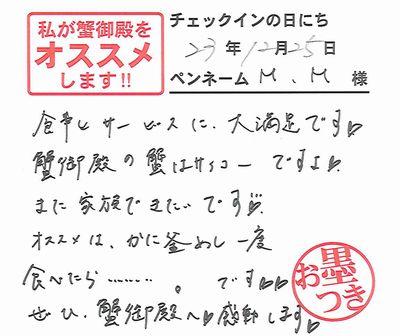 私が蟹御殿を
オススメ
します!!
チェックインの日にち
23年12月25日
ペンネーム M.M 様
食事とサービスに、大満足です♡
蟹御殿の蟹はサイコーですよ♡
また家族できたいです♡
オススメは、かに釜めし一度
食べたら………。です♡♡
ぜひ、蟹御殿へ♡感動します♡
お墨つき